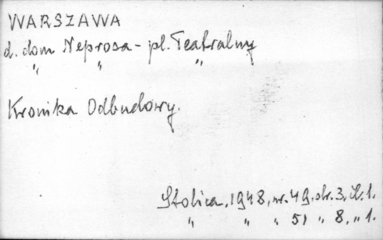 WARSZAWA
d. dom Neprosa - pl. Teatralny
" " "
Kronika Odbudowy.
Stolica, 1948, nr. 49, str. 3, il. 1.
" " 51 " 8, " 1.